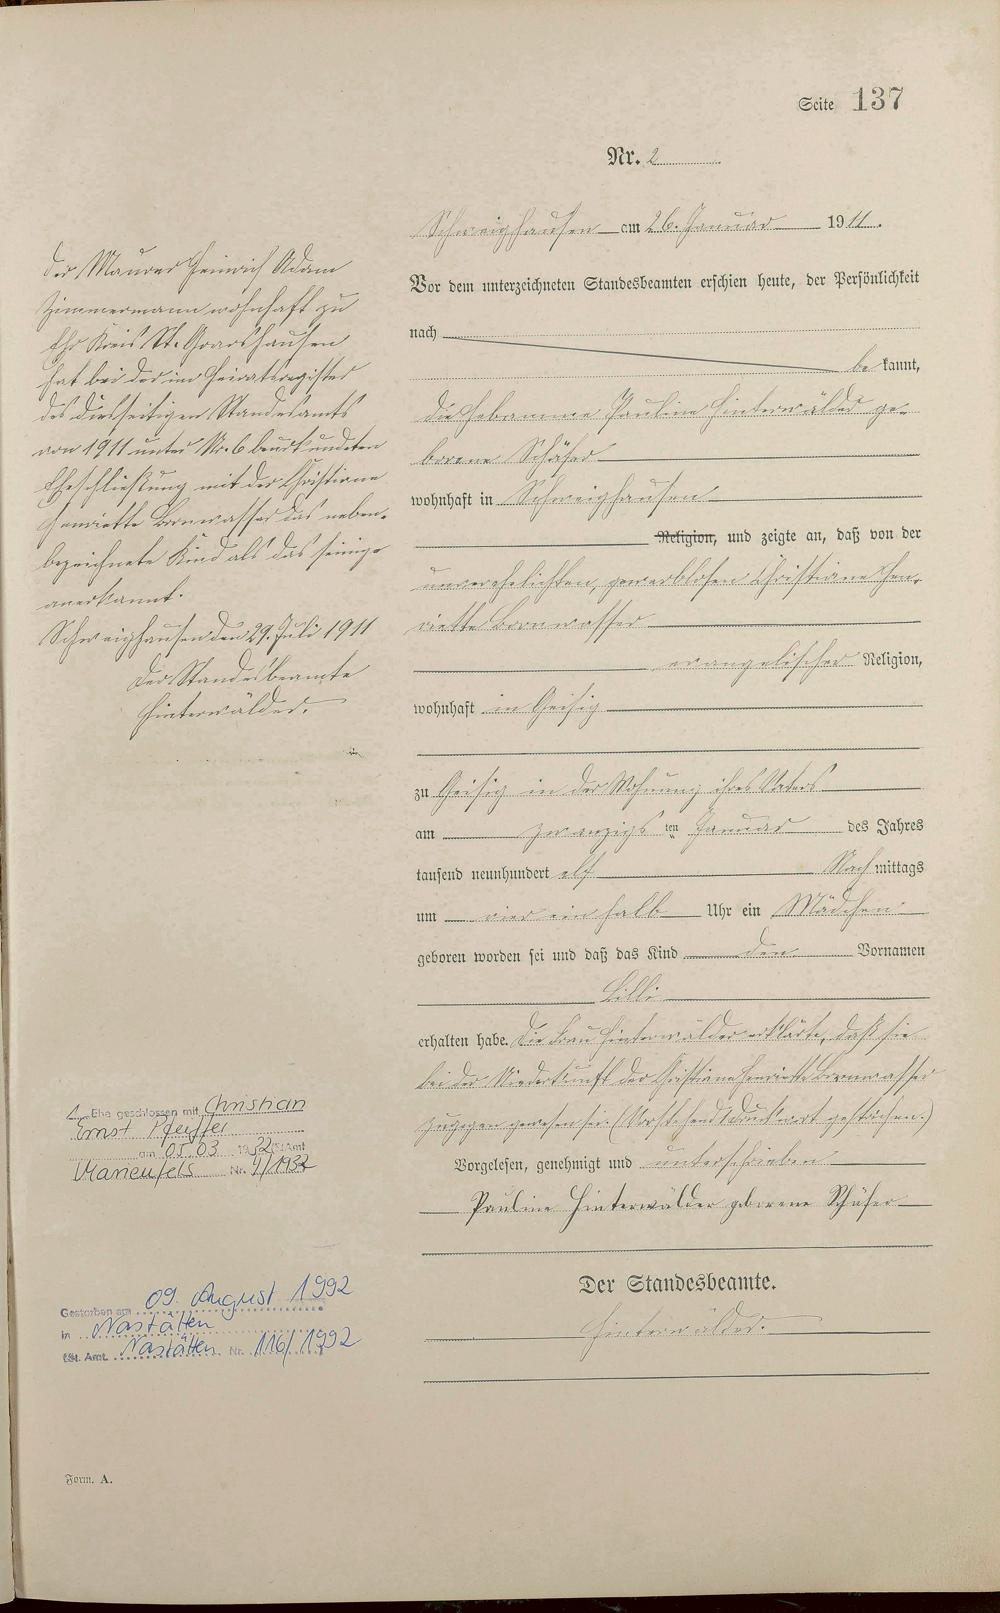 Seite 137
Nr. 2
Schweighausen am 26. Januar 1911.
Vor dem unterzeichneten Standesbeamten erschien heute, der Persönlichkeit
nach
be kannt,
die Hebamme Pauline Hinterwälder ge-
borene Schäfer
wohnhaft in Schweighausen
Religion, und zeigte an, daß von der
unverehelichten, gewerblosen Christiane Hen-
riette Bornwasser
evangelischer Religion,
wohnhaft in Geisig
zu Geisig in der Wohnung ihres Vaters
am zwanzigs ten Januar des Jahres
tausend neunhundert elf Nach mittags
um vier ein halb Uhr ein Mädchen
geboren worden sei und daß das Kind den Vornamen
Lilli
erhalten habe. Die Frau Hinterwälder erklärte, daß sie
bei der Niederkunft der Christiane Henriette Bornwasser
zugegen gewesen sei. (Vorstehend 1 Druckwort gestrichen.)
Vorgelesen, genehmigt und unterschrieben
Pauline Hinterwälder geborene Schäfer
Der Standesbeamte.
Hinterwälder.
Der Maurer Heinrich Adam
Zimmermann wohnhaft zu
Ehr Kreis St. Goarshausen
hat bei der im Heiratsregister
des diesseitigen Standesamts
von 1911 unter Nr. 6 beurkundeten
Eheschließung mit der Christiane
Henriette Bornwasser das neben-
bezeichnete Kind als das seinige
anerkannt.
Schweighausen den 29. Juli 1911
Der Standesbeamte
Hinterwälder.
1. Ehe geschlossen mit Christian
Ernst Pfeiffer
am 05.03. 1932 StAmt
Marienfels Nr. 1/1932
Gestorben am 09. August 1992
in Nastätten
St. Amt. Nastätten Nr. 116/1992
Form. A.